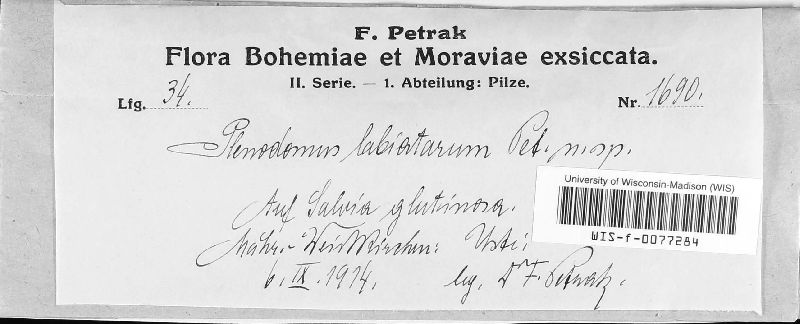 F. Petrak
Flora Bohemiae et Moraviae exsiccata.
II. Serie. — 1. Abteilung: Pilze.
Lfg. 34. Nr. 1690.
Plenodomus labiatarum Pet. n. sp.
Auf Salvia glutinosa.
Mähr.-Weisskirchen: Usti:
6. IX. 1914. leg. Dr F. Petrak.
University of Wisconsin-Madison (WIS)
WIS-f-0077284